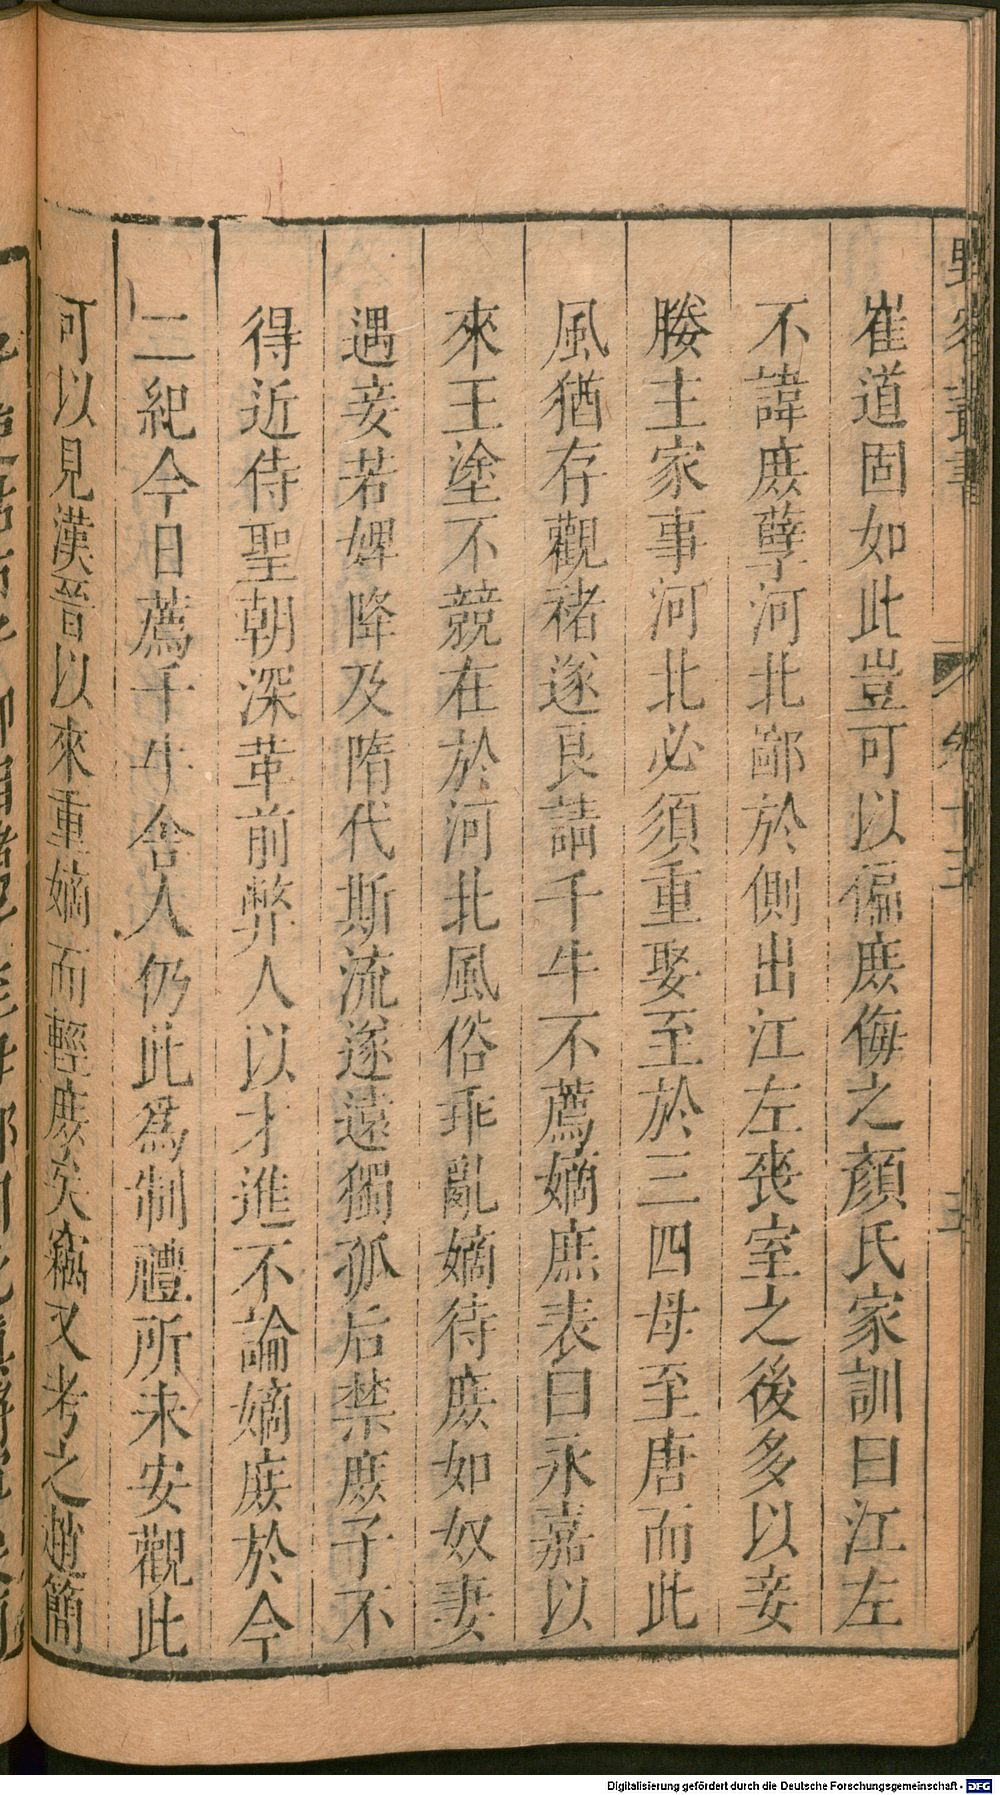 野客叢書
卷十五
五
崔道固如此豈可以偏庶侮之顏氏家訓曰江左
不諱庶孽河北鄙於側出江左喪室之後多以妾
媵主家事河北必須重娶至於三四母至唐而此
風猶存觀褚遂良請千牛不薦嫡庶表曰永嘉以
來王塗不競在於河北風俗乖亂嫡待庶如奴妻
遇妾若婢降及隋代斯流遂遠獨孤后禁庶子不
得近侍聖朝深革前弊人以才進不論嫡庶於今
二紀今日薦千牛舍人仍此為制禮所未安觀此
可以見漢晉以來重嫡而輕庶矣竊又考之趙簡
Digitalisierung gefördert durch die Deutsche Forschungsgemeinschaft - DFG